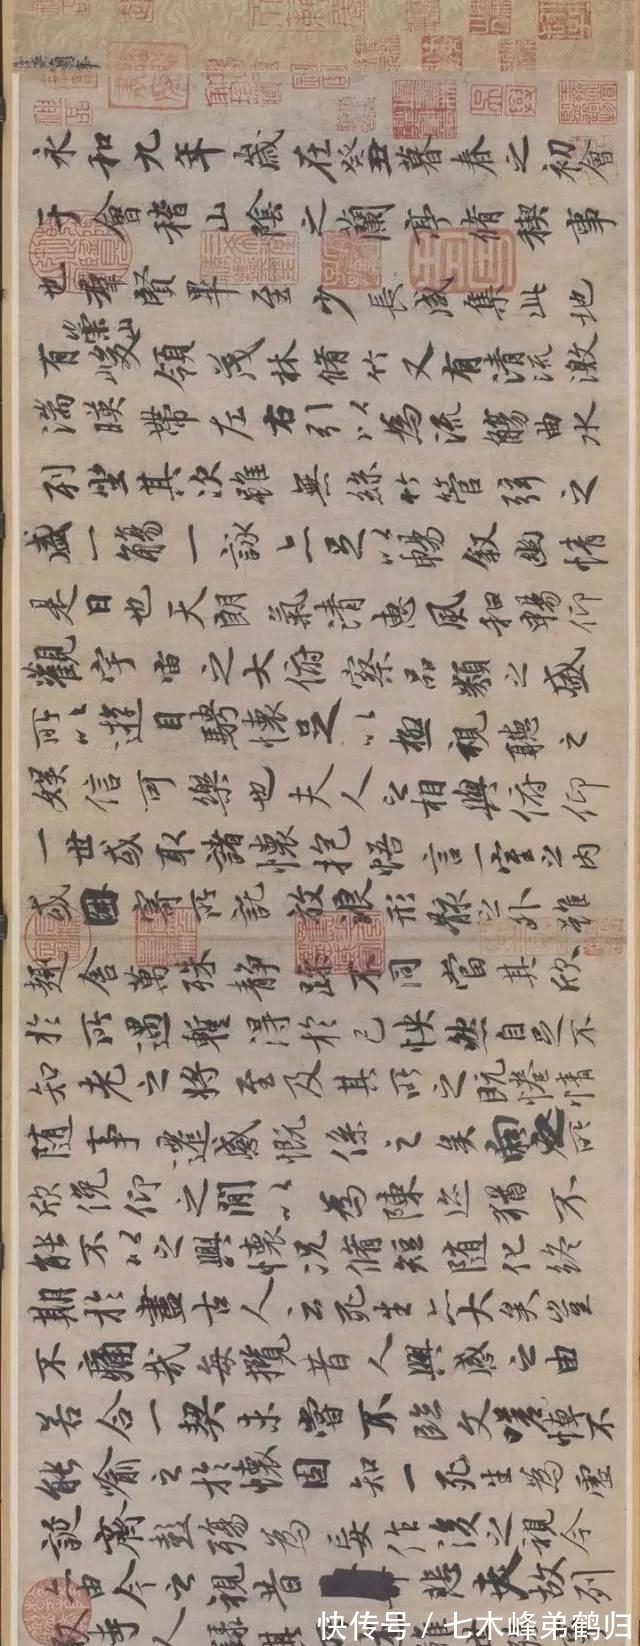 永和九年歲在癸丑暮春之初會
于會稽山陰之蘭亭脩稧事
也羣賢畢至少長咸集此地
有崇山峻領茂林脩竹又有清流激
湍暎帶左右引以為流觴曲水
列坐其次雖無絲竹管弦之
盛一觴一詠亦足以暢敘幽情
是日也天朗氣清惠風和暢仰
觀宇宙之大俯察品類之盛
所以遊目騁懷足以極視聽之
娛信可樂也夫人之相與俯仰
一世或取諸懷抱悟言一室之內
或因寄所託放浪形骸之外雖
趣舍萬殊靜躁不同當其欣
於所遇暫得於己怏然自足不
知老之將至及其所之既惓情
隨事遷感慨係之矣向之所
欣俛仰之閒以為陳迹猶不
能不以之興懷況脩短隨化終
期於盡古人云死生亦大矣豈
不痛哉每攬昔人興感之由
若合一契未嘗不臨文嗟悼不
能喻之於懷固知一死生為虛
誕齊彭殤為妄作後之視今
由今之視昔悲夫故列
快传号/七木峰弟鹤归